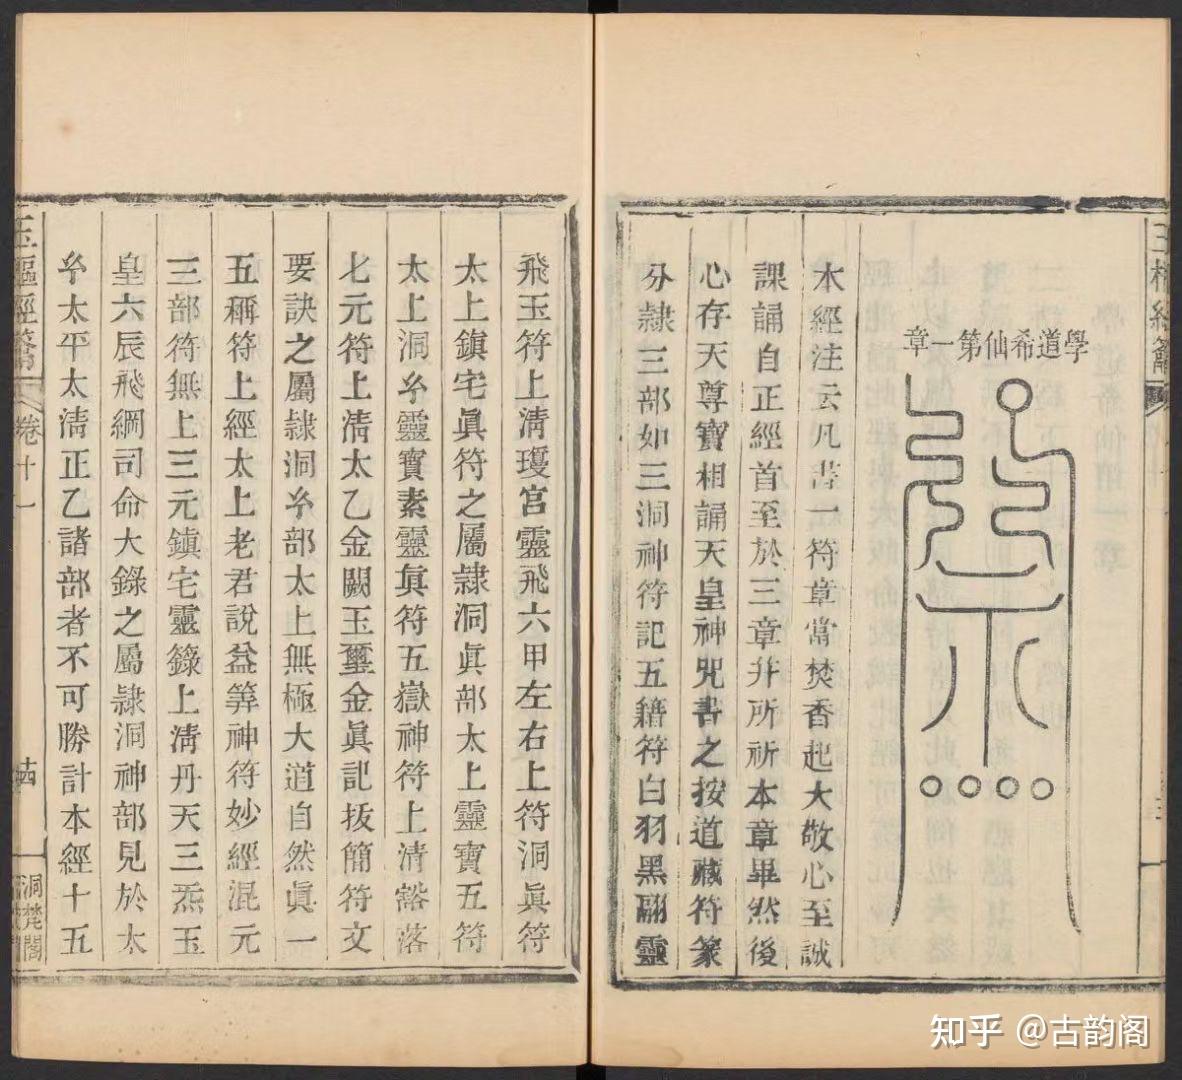 學道希仙第一章
本經注云凡書一符章當焚香起大敬心至誠
課誦自正經首至於三章幷所祈本章畢然後
心存天尊寶相誦天皇神咒書之按道藏符篆
分隸三部如三洞神符記五籍符白羽黑翮靈
飛玉符上淸瓊宮靈飛六甲左右上符洞眞符
太上鎮宅眞符之屬隸洞眞部太上靈寶五符
太上洞𤣥靈寶素靈眞符五嶽神符上淸豁落
七元符上淸太乙金闕玉璽金眞記拔簡符文
要訣之屬隸洞𤣥部太上無極大道自然眞一
五稱符上經太上老君說益筭神符妙經混元
三部符無上三元鎮宅靈籙上淸丹天三炁玉
皇六辰飛綱司命大錄之屬隸洞神部見於太
𤣥太平太淸正乙諸部者不可勝計本經十五
玉樞經籥
卷十一
十四
洞梵閣
知乎 @古韵阁